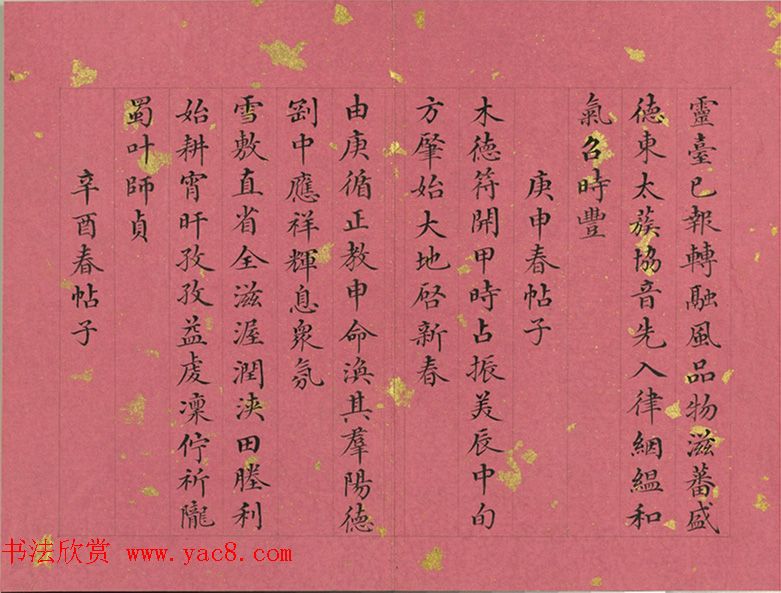 靈臺已報轉融風品物滋蕃盛
德東太蔟協音先入律絪縕和
氣召時豐
庚申春帖子
木德符開甲時占振美辰中旬
方肇始大地啓新春
由庚循正教申命渙其羣陽德
剛中應祥輝息衆氛
雪敷直省全滋渥潤浹田塍利
始耕宵旰孜孜益虔凜佇祈隴
蜀叶師貞
辛酉春帖子
书法欣赏 www.yac8.com